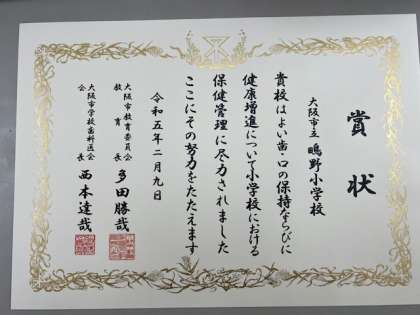 賞状
大阪市立 鴫野小学校
貴校はよい歯・口の保持ならびに
健康増進について小学校における
保健管理に尽力されました
ここにその努力をたたえます
令和五年二月九日
大阪市教育委員会
教育長 多田勝哉
大阪市学校歯科医会
会長 西本達哉